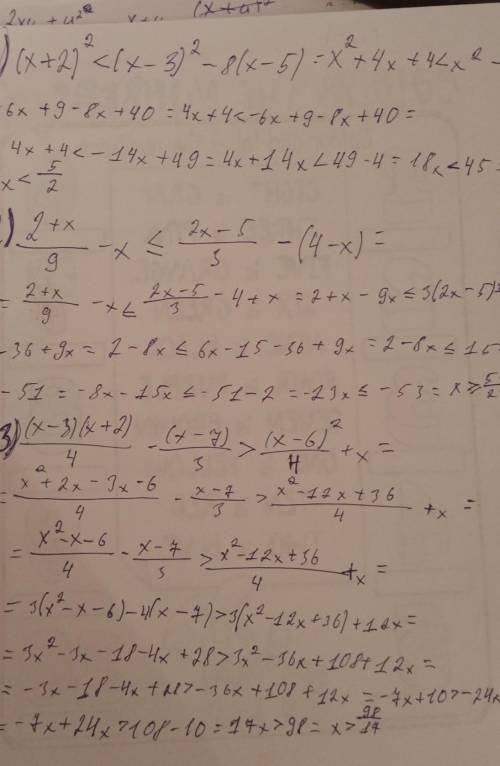 2xu + u²
x+u
(x+u)²
) (x+2)² < (x-3)² - 8(x-5) = x² + 4x + 4 < x² -
6x + 9 - 8x + 40 = 4x + 4 < -6x + 9 - 8x + 40 =
4x + 4 < -14x + 49 = 4x + 14x < 49 - 4 = 18x < 45 =
x < 5/2
) (2+x)/9 - x ≤ (2x-5)/3 - (4-x) =
= (2+x)/9 - x ≤ (2x-5)/3 - 4 + x = 2 + x - 9x ≤ 3(2x-5)
-36 + 9x = 2 - 8x ≤ 6x - 15 - 36 + 9x = 2 - 8x ≤ 15
-51 = -8x - 15x ≤ -51 - 2 = -23x ≤ -53 = x ≥
3) (x-3)(x+2)/4 - (x-7)/3 > (x-6)²/4 + x =
= (x² + 2x - 3x - 6)/4 - (x-7)/3 > (x² - 12x + 36)/4 + x =
= (x² - x - 6)/4 - (x-7)/3 > (x² - 12x + 36)/4 + x =
= 3(x² - x - 6) - 4(x - 7) > 3(x² - 12x + 36) + 12x =
= 3x² - 3x - 18 - 4x + 28 > 3x² - 36x + 108 + 12x =
= -3x - 18 - 4x + 28 > -36x + 108 + 12x = -7x + 10 > -24x
= -7x + 24x > 108 - 10 = 17x > 98 = x > 98/17